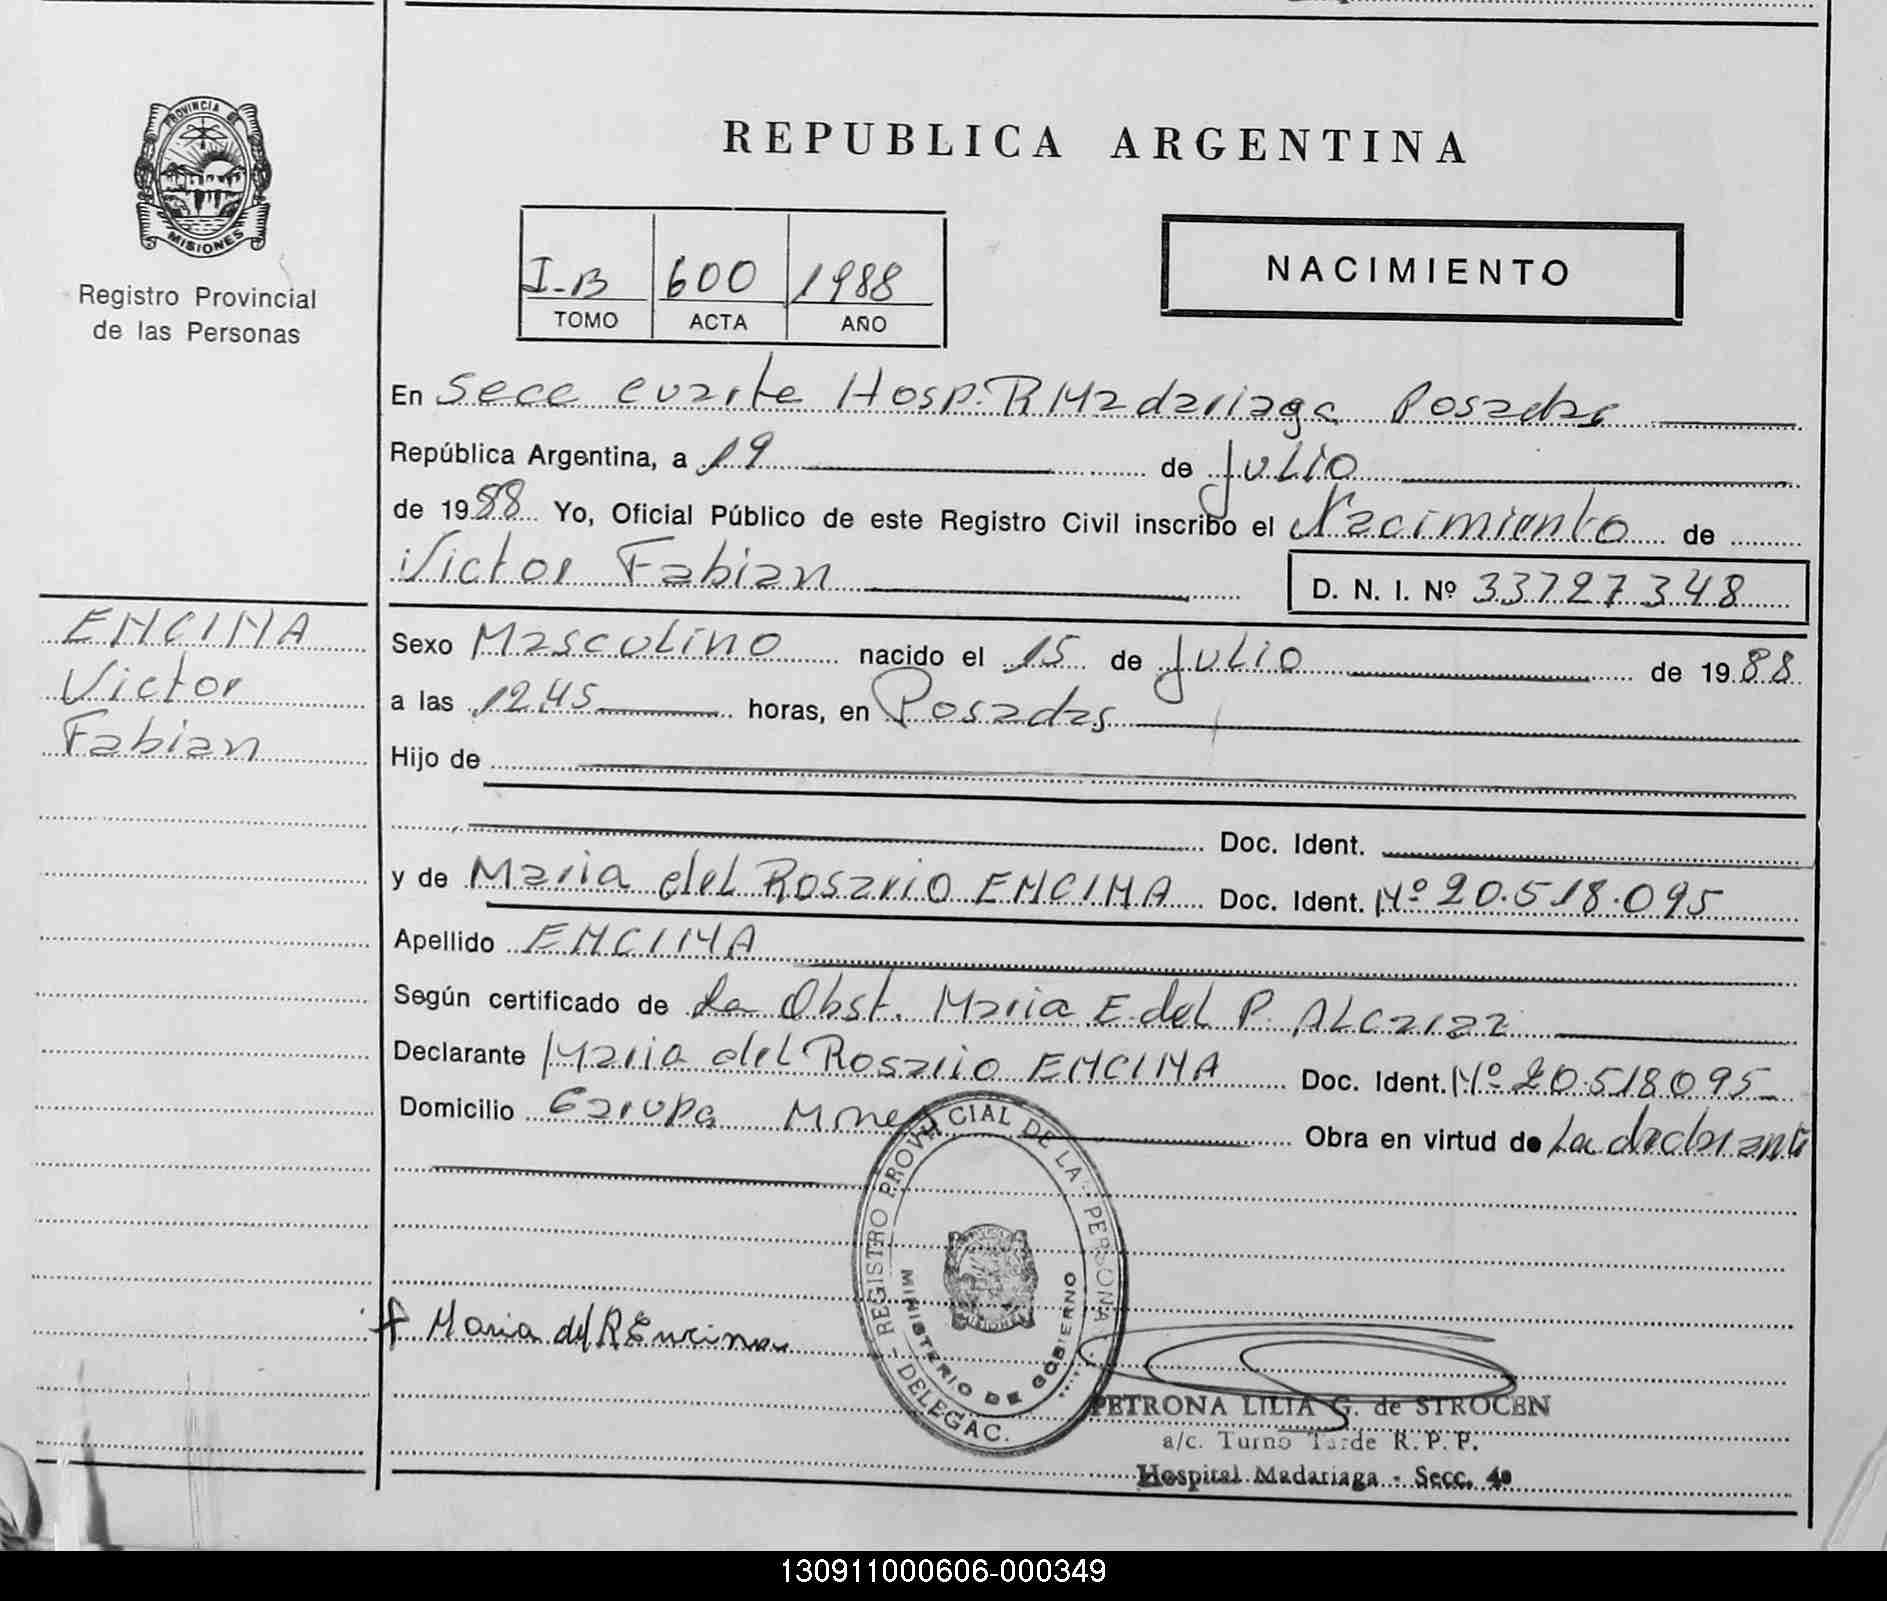 PROVINCIA DE
MISIONES
Registro Provincial
de las Personas
REPUBLICA ARGENTINA
I-B 600 1988
TOMO ACTA AÑO
NACIMIENTO
En Secc cuarta Hosp. R Madariaga Posadas
República Argentina, a 19 de Julio
de 1988 Yo, Oficial Público de este Registro Civil inscribo el Nacimiento de
Victor Fabian
D. N. I. Nº 33727348
ENCINA
Victor
Fabian
Sexo Masculino nacido el 15 de Julio de 1988
a las 12,45 horas, en Posadas
Hijo de
Doc. Ident.
y de Maria del Rosario ENCINA Doc. Ident. Nº 20.518.095
Apellido ENCINA
Según certificado de La Obst. Maria E. del P. ALcaraz
Declarante Maria del Rosario ENCINA Doc. Ident. Nº 20.518095
Domicilio Garupa Mnes Obra en virtud de La declarante
REGISTRO PROVINCIAL DE LA PERSONA
MINISTERIO DE GOBIERNO
- DELEGAC.
Maria del R Encina
PETRONA LILIA G. de STROCEN
a/c. Turno Tarde R. P. P.
Hospital Madariaga - Secc. 4º
130911000606-000349